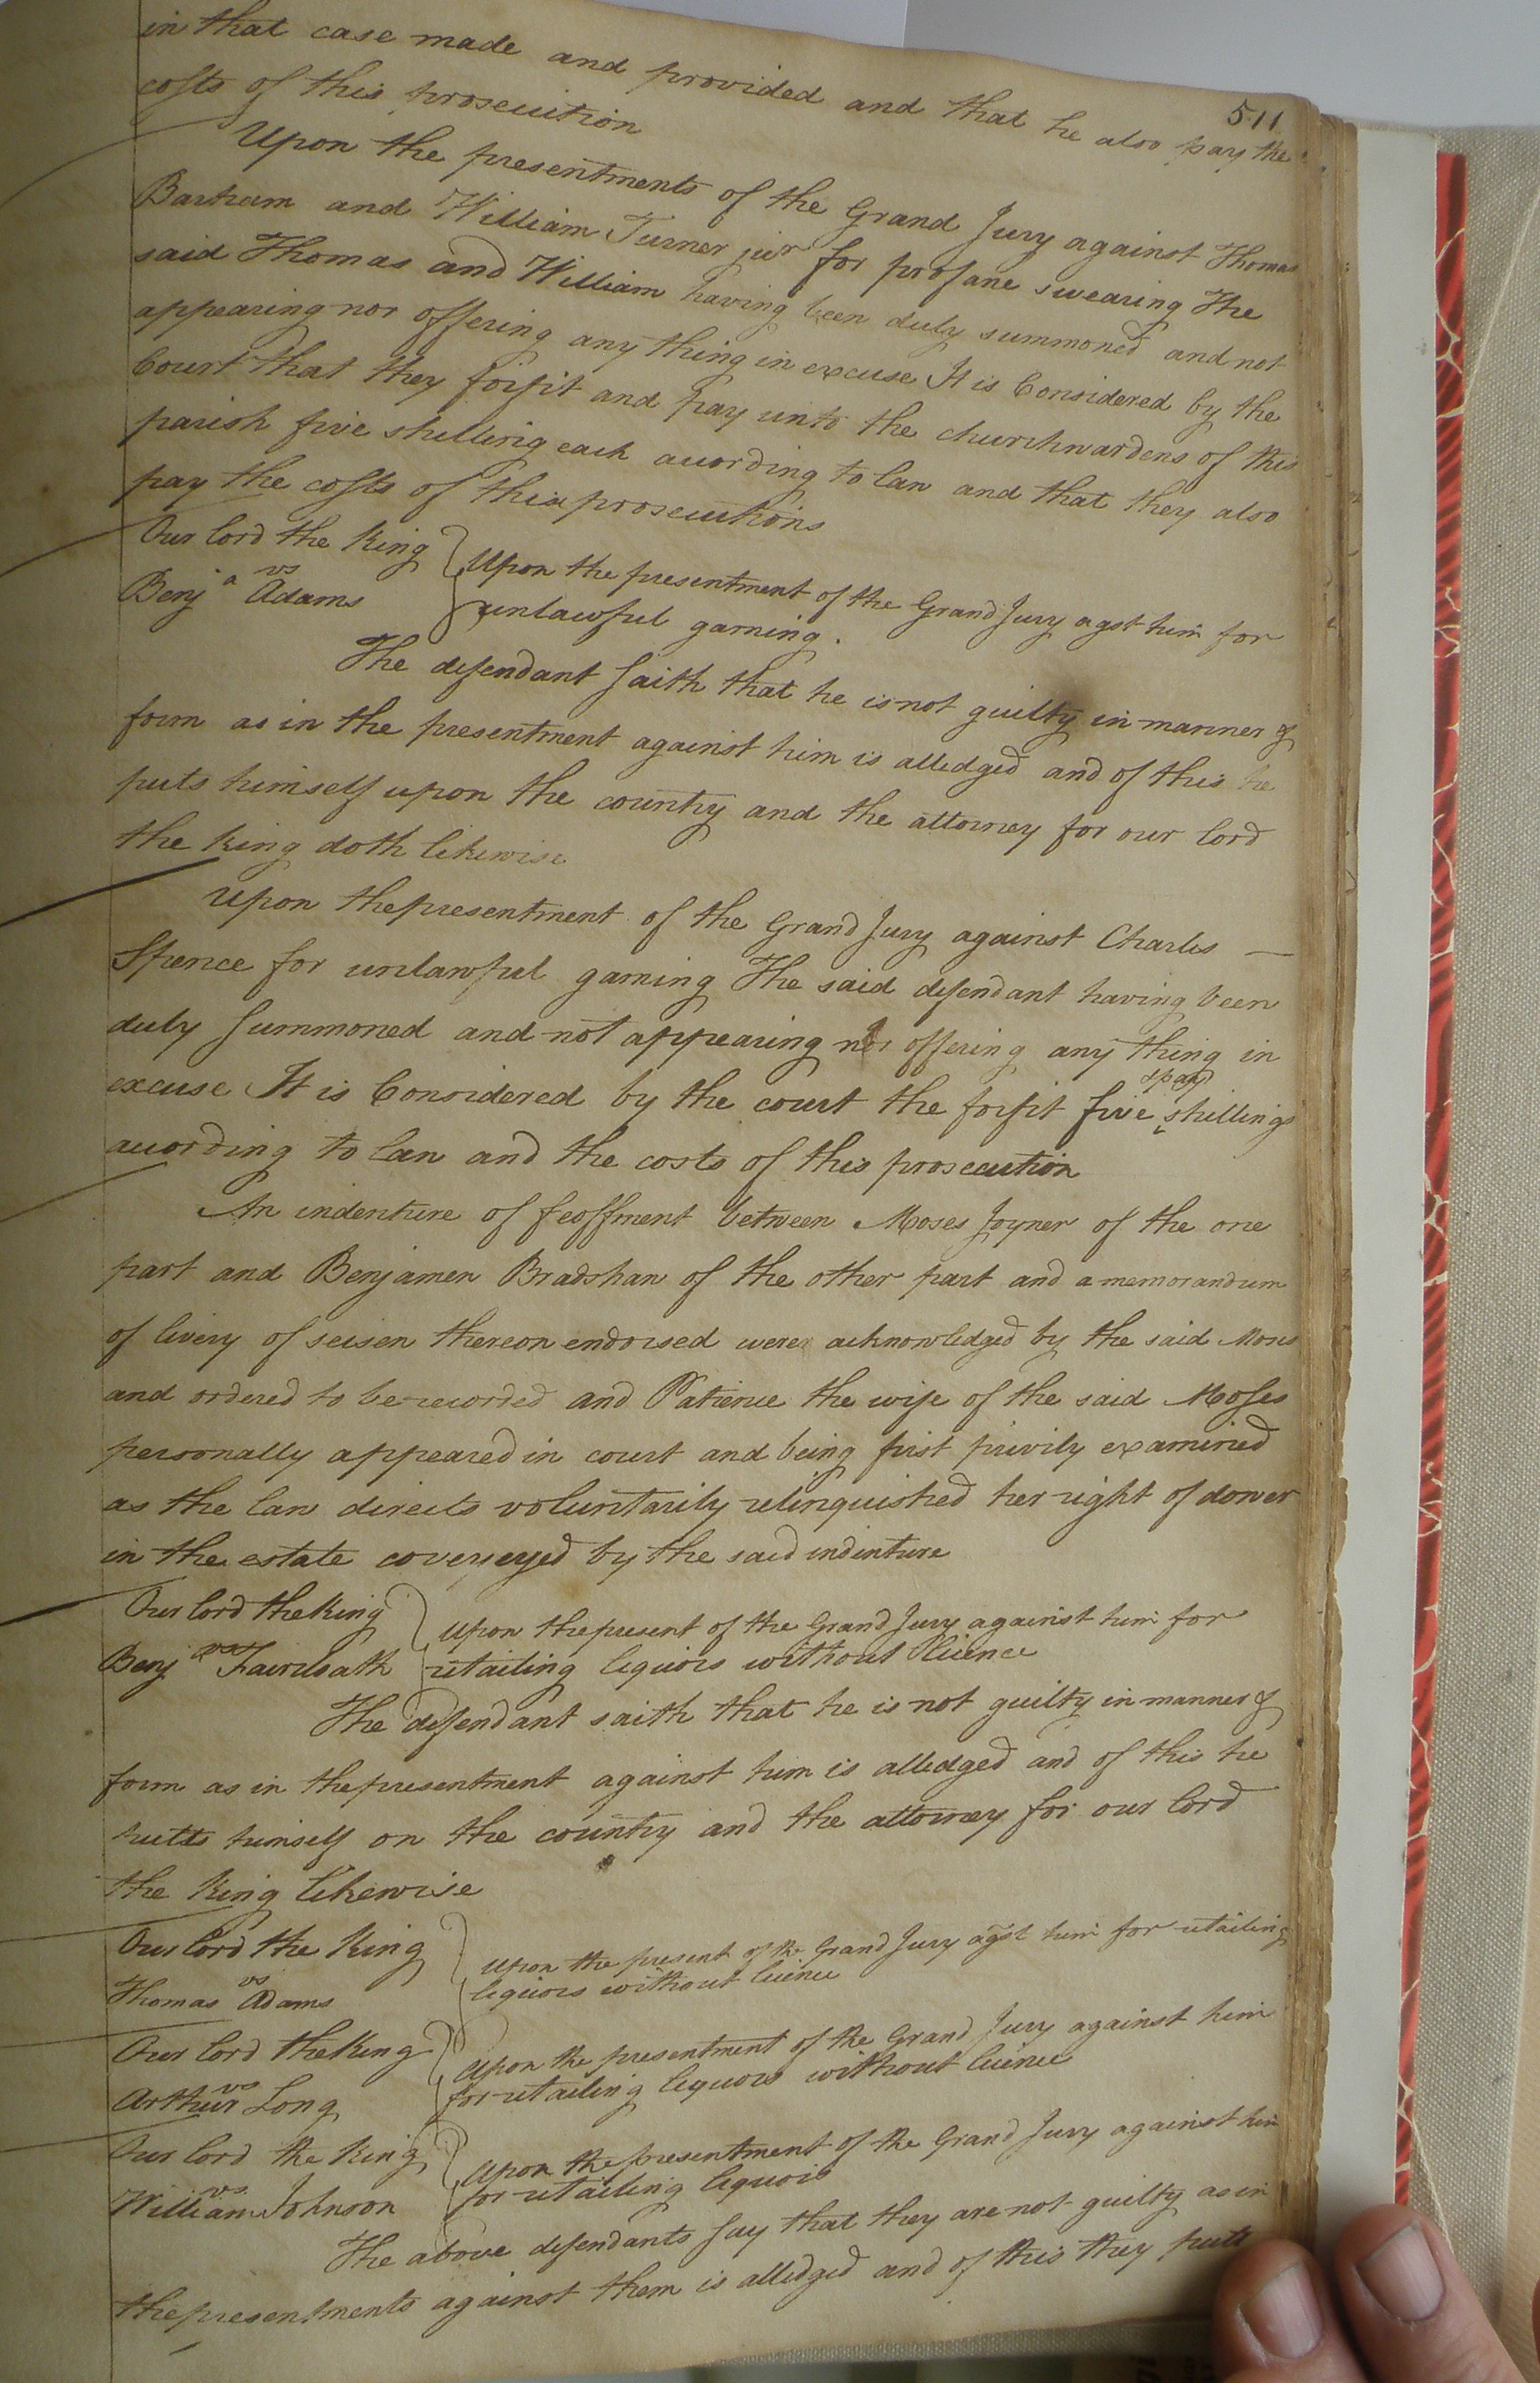 511
in that case made and provided and that he also pay the
costs of this prosecution
Upon the presentments of the Grand Jury against Thomas
Bartram and William Turner jur for profane swearing The
said Thomas and William having been duly summoned and not
appearing nor offering any thing in excuse It is Considered by the
Court that they forfit and pay unto the churchwardens of this
parish five shilling each according to law and that they also
pay the costs of this prosecutions
Our lord the King
vs
Benja Adams
Upon the presentment of the Grand Jury agst him for
unlawful gaming.
The defendant saith that he is not guilty in manner &
form as in the presentment against him is alledged and of this he
puts himself upon the country and the attorney for our lord
the King doth likewise
Upon the presentment of the Grand Jury against Charles —
Spence for unlawful gaming The said defendant having been
duly summoned and not appearing nor offering any thing in
excuse It is Considered by the court the forfit five shillings
according to law and the costs of this prosecution
An indenture of feoffment between Moses Joyner of the one
part and Benjamen Bradshaw of the other part and a memorandum
of livery of seisen thereon endorsed were acknowledged by the said Moses
and ordered to be recorded and Patience the wife of the said Moses
personally appeared in court and being first privily examined
as the law directs voluntarily relinquished her right of dower
in the estate coveyeyed by the said indinture
Our lord the King
vs
Benja Faircloath
Upon the present of the Grand Jury against him for
retailing liquors without licence
The defendant saith that he is not guilty in manner &
form as in the presentment against him is alledged and of this he
putts himself on the country and the attorney for our lord
the King likewise
Our lord the King
vs
Thomas Adams
Upon the present of the Grand Jury agst him for retailing
liquors without licence
Our lord the King
vs
Arthur Long
Upon the presentment of the Grand Jury against him
for retailing liquors without licence
Our lord the King
vs
William Johnson
Upon the presentment of the Grand Jury against him
for retailing liquors
The above defendants say that they are not guilty as in
the presentments against them is alledged and of this they putt